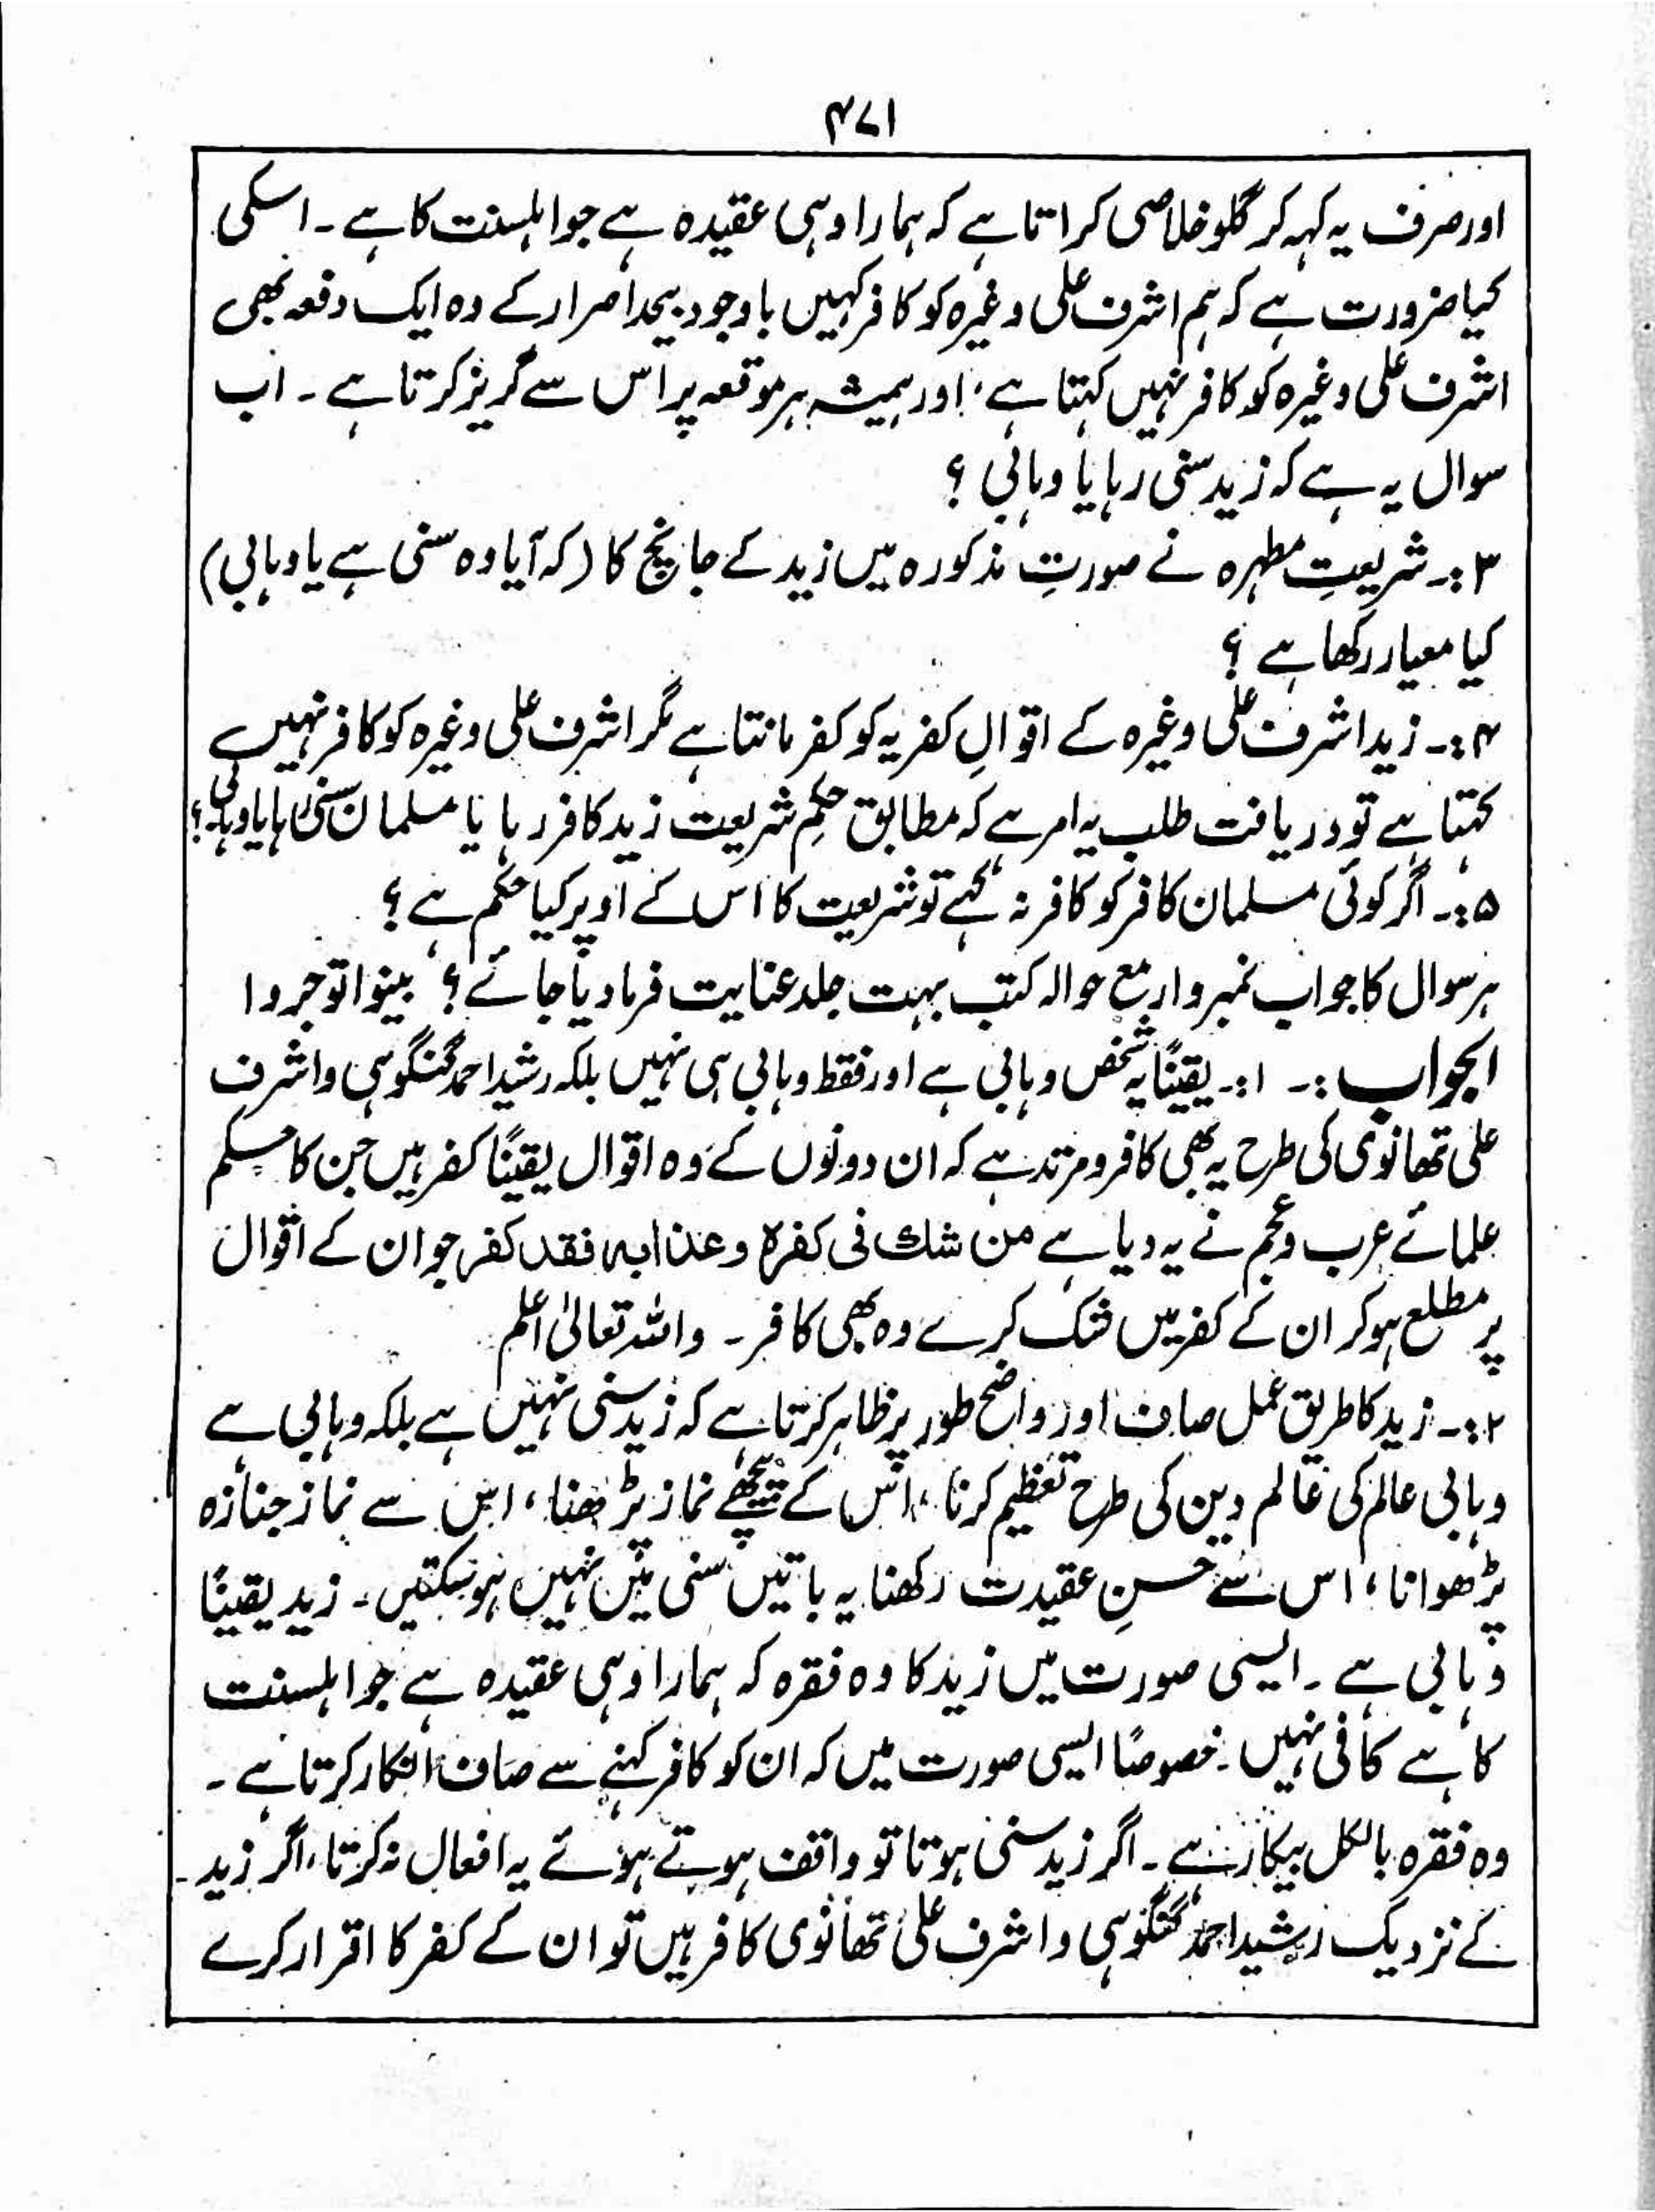 ۴۷۱
اور صرف یہ کہہ کر گلو خلاصی کراتا ہے کہ ہمارا وہی عقیدہ ہے جو اہلسنت کا ہے ۔ اسکی
کیا ضرورت ہے کہ ہم اشرف علی وغیرہ کو کافر کہیں باوجود بیحد اصرار کے وہ ایک دفعہ بھی
اشرف علی وغیرہ کو کافر نہیں کہتا ہے، اور ہمیشہ ہر موقعہ پر اس سے گریز کرتا ہے ۔ اب
سوال یہ ہے کہ زید سنی رہا یا وہابی ؟
۳:۔ شریعتِ مطہرہ نے صورتِ مذکورہ میں زید کے جانچ کا (کہ آیا وہ سنی ہے یا وہابی)
کیا معیار رکھا ہے ؟
۴:۔ زید اشرف علی وغیرہ کے اقوالِ کفریہ کو کفر مانتا ہے مگر اشرف علی وغیرہ کو کافر نہیں
کہتا ہے تو دریافت طلب یہ امر ہے کہ مطابق حکمِ شریعت زید کافر رہا یا مسلمان سنی رہا یا وہابی؟
۵:۔ اگر کوئی مسلمان کافر کو کافر نہ کہے تو شریعت کا اس کے اوپر کیا حکم ہے ؟
ہر سوال کا جواب نمبروار مع حوالہ کتب بہت جلد عنایت فرما دیا جائے ؟ بینوا توجروا
الجواب :۔ ۱:۔ یقینًا یہ شخص وہابی ہے اور فقط وہابی ہی نہیں بلکہ رشید احمد گنگوہی و اشرف
علی تھانوی کی طرح یہ بھی کافر و مرتد ہے کہ ان دونوں کے وہ اقوال یقینًا کفر ہیں جن کا حکم
علمائے عرب و عجم نے یہ دیا ہے من شك فی کفرہ وعذابہ فقد کفر جو ان کے اقوال
پر مطلع ہو کر ان کے کفر میں شک کرے وہ بھی کافر ۔ واللہ تعالیٰ اعلم
۲:۔ زید کا طریق عمل صاف اور واضح طور پر ظاہر کرتا ہے کہ زید سنی نہیں ہے بلکہ وہابی ہے
وہابی عالم کی عالم دین کی طرح تعظیم کرنا ، اس کے پیچھے نماز پڑھنا ، اس سے نماز جنازہ
پڑھوانا ، اس سے حسنِ عقیدت رکھنا یہ باتیں سنی میں نہیں ہو سکتیں ۔ زید یقینًا
وہابی ہے ۔ ایسی صورت میں زید کا وہ فقرہ کہ ہمارا وہی عقیدہ ہے جو اہلسنت
کا ہے کافی نہیں ۔ خصوصًا ایسی صورت میں کہ ان کو کافر کہنے سے صاف انکار کرتا ہے ۔
وہ فقرہ بالکل بیکار ہے ۔ اگر زید سنی ہوتا تو واقف ہوتے ہوئے یہ افعال نہ کرتا ، اگر زید
کے نزدیک رشید احمد گنگوہی و اشرف علی تھانوی کافر ہیں تو ان کے کفر کا اقرار کرے